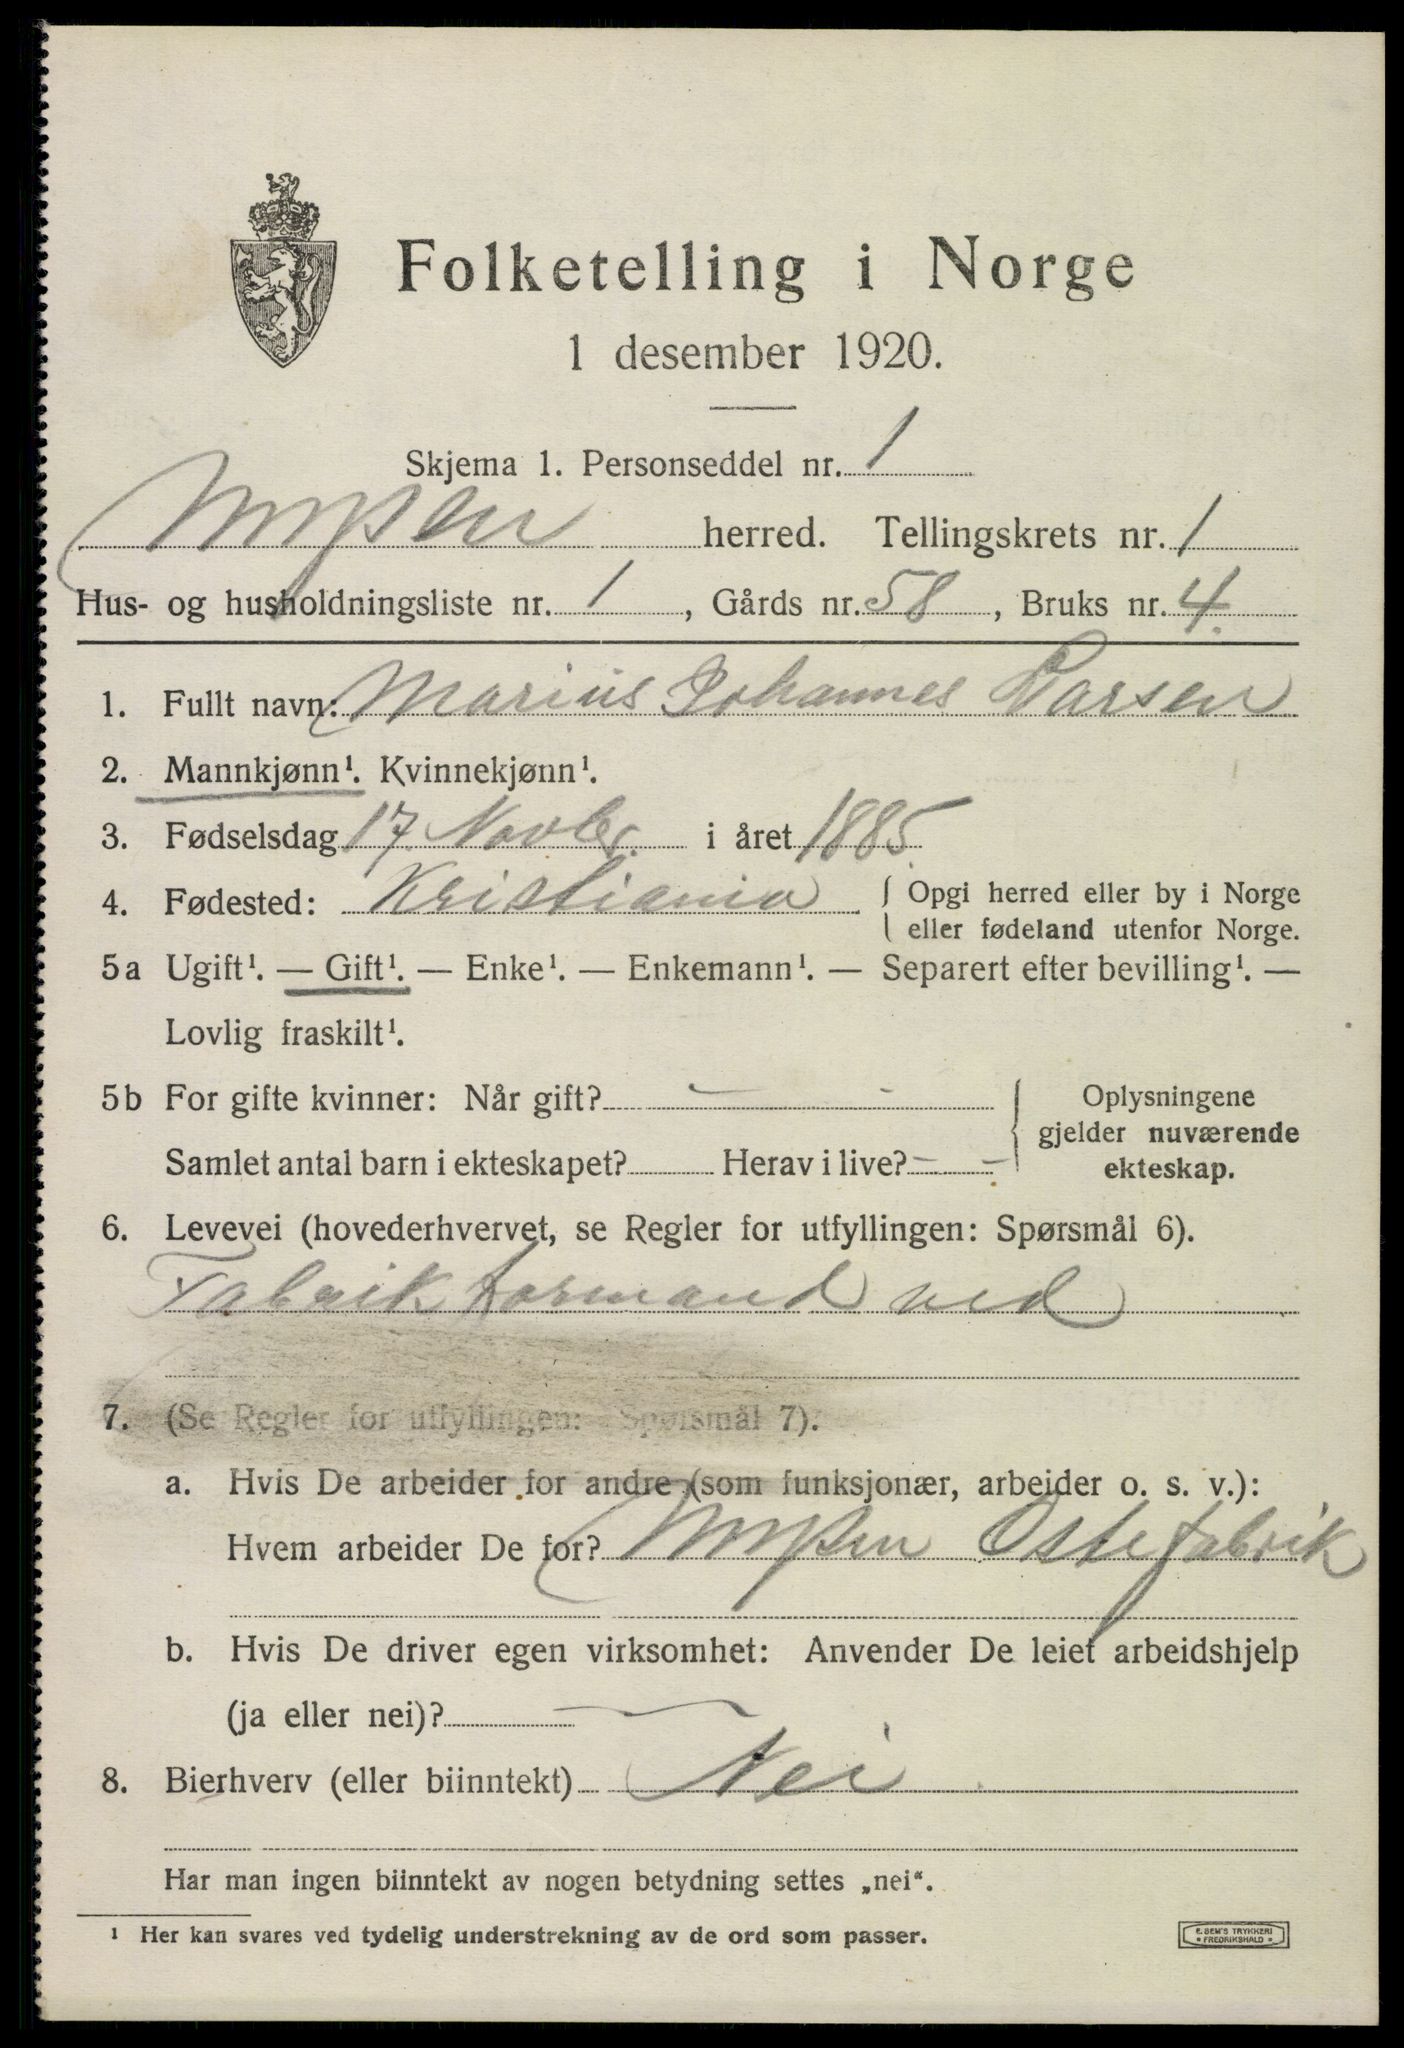 Folketelling i Norge
1 desember 1920.
Skjema 1. Personseddel nr. 1
Mysen herred. Tellingskrets nr. 1
Hus- og husholdningsliste nr. 1, Gårds nr. 58, Bruks nr. 4.
1. Fullt navn: Marius Johannes Larsen
2. Mannkjønn¹. Kvinnekjønn¹.
3. Fødselsdag 17. Novbr. i året 1885.
4. Fødested: Kristiania { Opgi herred eller by i Norge
eller fødeland utenfor Norge.
5a Ugift¹. — Gift¹. — Enke¹. — Enkemann¹. — Separert efter bevilling¹. —
Lovlig fraskilt¹.
5b For gifte kvinner: Når gift? — - } Oplysningene
gjelder nuværende
Samlet antal barn i ekteskapet? Herav i live? - - ekteskap.
6. Levevei (hovederhvervet, se Regler for utfyllingen: Spørsmål 6).
Fabrikformand ved
7. (Se Regler for utfyllingen: Spørsmål 7).
a. Hvis De arbeider for andre (som funksjonær, arbeider o. s. v.):
Hvem arbeider De for? Mysen Ostefabrik
b. Hvis De driver egen virksomhet: Anvender De leiet arbeidshjelp
(ja eller nei)? —
8. Bierhverv (eller biinntekt) Nei
Har man ingen biinntekt av nogen betydning settes „nei“.
¹ Her kan svares ved tydelig understrekning av de ord som passer.
E. SEM'S TRYKKERI
* FREDRIKSHALD *